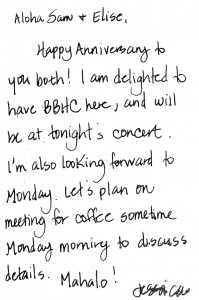 Aloha Sam & Elise,
Happy Anniversary to
you both! I am delighted to
have BBHC here, and will
be at tonight's concert.
I'm also looking forward to
Monday. Let's plan on
meeting for coffee sometime
Monday morning to discuss
details. Mahalo!